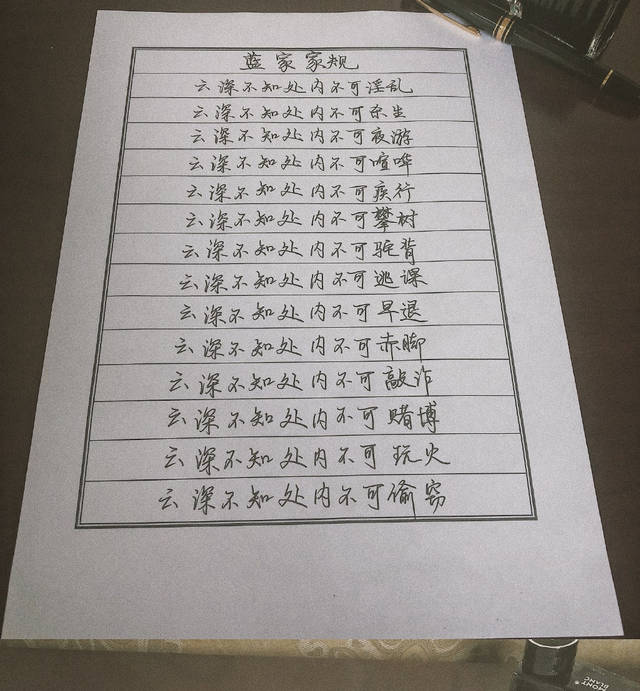 蓝家家规
云深不知处内不可淫乱
云深不知处内不可杀生
云深不知处内不可夜游
云深不知处内不可喧哗
云深不知处内不可疾行
云深不知处内不可攀树
云深不知处内不可驼背
云深不知处内不可逃课
云深不知处内不可早退
云深不知处内不可赤脚
云深不知处内不可敲诈
云深不知处内不可赌博
云深不知处内不可玩火
云深不知处内不可偷窃
MONT
BLANC